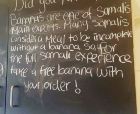 Did you
Bananas are one of Somalis
Main exports. Many Somalis
Consider a Meal to be incomplete
without a banana. So, for
the full Somali experience
take a free banana with
your order!